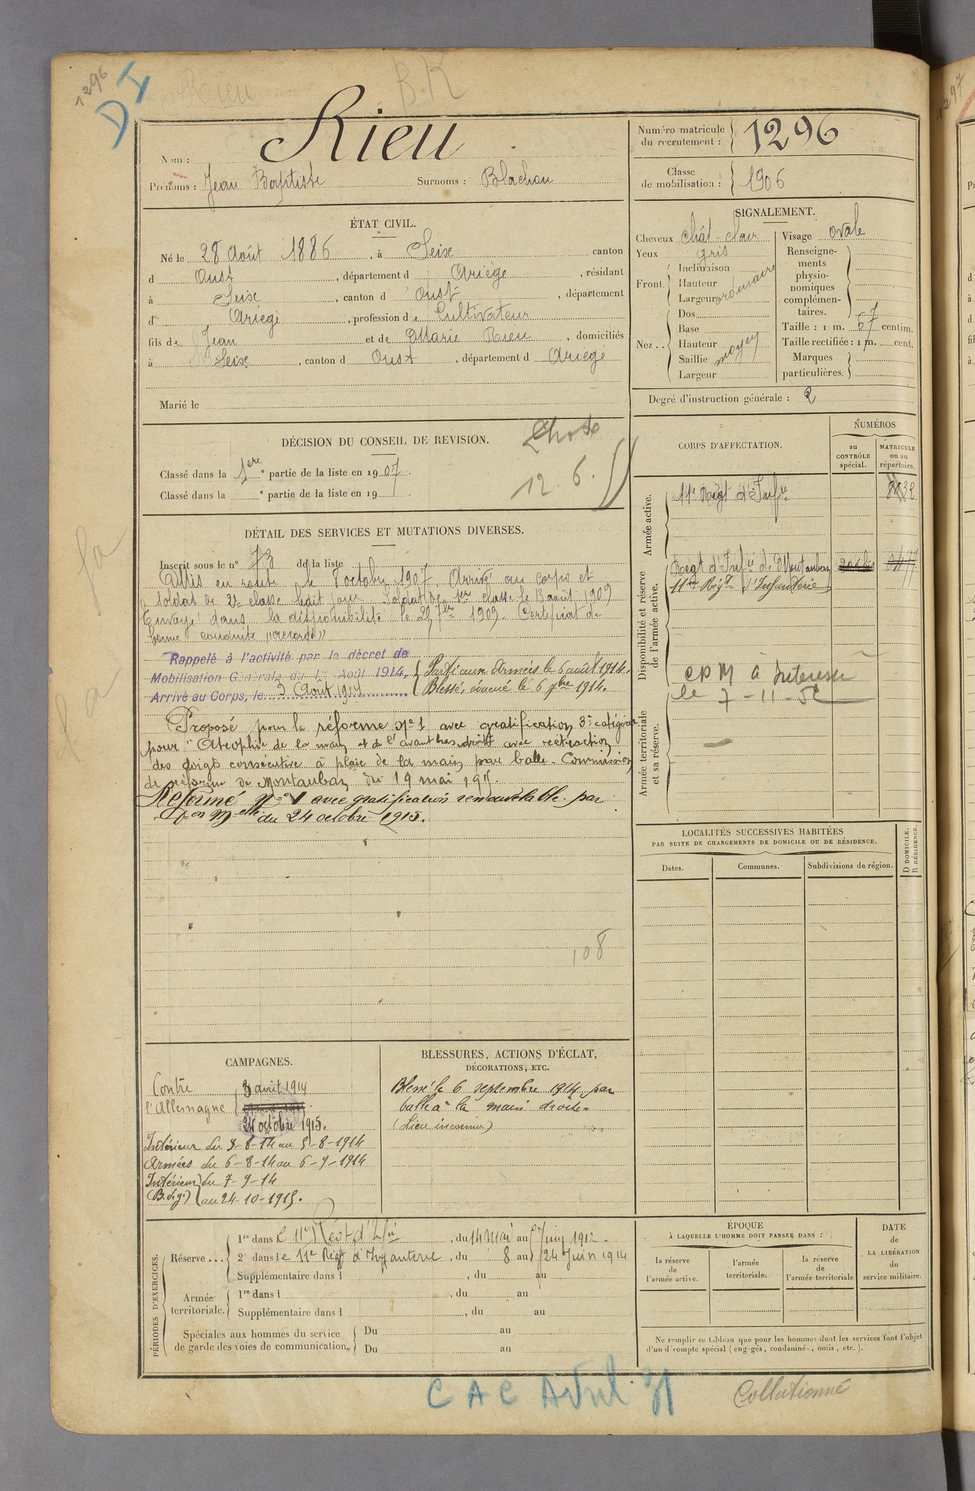 1296
D I
Rieu
B.K
Rieu
Nom :
Prénoms : Jean Baptiste Surnoms : Blachou
Numéro matricule du recrutement : 1296
Classe de mobilisation : 1906
ÉTAT CIVIL.
Né le 28 Août 1886, à Seix canton
d Oust, département d Ariège, résidant
à Seix, canton d Oust, département
d Ariège, profession de Cultivateur
fils de Jean et de Marie Rieu, domiciliés
à Seix, canton d Oust, département d Ariège
Marié le
SIGNALEMENT.
Cheveux chât-clair
Yeux gris
Front. Inclinaison
Hauteur
Largeur
ordinaire
Nez.. Dos
Base
Hauteur
Saillie
Largeur
moyen
Visage ovale
Renseigne-
ments
physio-
nomiques
complémen-
taires.
Taille : 1 m. 67 centim.
Taille rectifiée : 1 m. cent.
Marques
particulières.
Degré d'instruction générale : 2
DÉCISION DU CONSEIL DE REVISION.
Classé dans la 1ère partie de la liste en 1907.
Classé dans la e partie de la liste en 19 .
12.6.
DÉTAIL DES SERVICES ET MUTATIONS DIVERSES.
Inscrit sous le n° 78 de la liste
Mis en route le 7 octobre 1907. Arrivé au corps et
soldat de 2e classe ledit jour. Soldat de 1re classe le 13 août 1909
Envoyé dans la disponibilité le 25 7bre 1909. Certificat de
bonne conduite "accordé"
Rappelé à l'activité par le décret de
Mobilisation Générale du 1er Août 1914.
Arrivé au Corps, le 3 Août 1914
Parti aux Armées le 6 août 1914.
Blessé, évacué le 6 7bre 1914.
Proposé pour la réforme N° 1 avec gratification 3e catégorie
pour "Atrophie de la main et de l'avant bras droit avec rétraction
des doigts consécutive à plaie de la main par balle. Commission
de réforme de Montauban du 19 mai 1915.
Réformé N° 1 avec gratification renouvelable par
don Melle du 24 octobre 1915.
108
CORPS D'AFFECTATION.
NUMÉROS
au CONTRÔLE spécial.
MATRICULE ou au répertoire.
Armée active.
11e Régt d'Infie
Disponibilité et réserve de l'armée active.
Régt d'Infie de Montauban
11me Régt d'Infanterie
CPM à Interessé
le 7-11-52
Armée territoriale et sa réserve.
LOCALITÉS SUCCESSIVES HABITÉES
PAR SUITE DE CHANGEMENTS DE DOMICILE OU DE RÉSIDENCE.
Dates.
Communes.
Subdivisions de région.
D DOMICILE.
R RÉSIDENCE.
CAMPAGNES.
Contre
l'Allemagne
3 août 1914
24 octobre 1915.
Intérieur du 3-8-14 au 5-8-1914
Armées du 6-8-14 au 6-9-1914
Intérieur du 7-9-14
(B. d. g.) au 24-10-1915.
BLESSURES, ACTIONS D'ÉCLAT,
DÉCORATIONS, ETC.
Blessé le 6 septembre 1914 par
balle à la main droite.
(Lieu inconnu)
PÉRIODES D'EXERCICES.
Réserve...
1re dans le 11e Régt d'Infie, du 14 Mai au 5 Juin 1912.
2e dans le 11e Régt d'Infanterie, du 8 au 24 Juin 1914
Supplémentaire dans l , du au
Armée territoriale.
1re dans l , du au
Supplémentaire dans l , du au
Spéciales aux hommes du service
de garde des voies de communication.
Du au
Du au
ÉPOQUE
À LAQUELLE L'HOMME DOIT PASSER DANS :
la réserve de l'armée active.
l'armée territoriale.
la réserve de l'armée territoriale
DATE
de
LA LIBÉRATION
du
service militaire.
Ne remplir ce tableau que pour les hommes dont les services font l'objet
d'un décompte spécial (engagés, condamnés, omis, etc.).
C A C Avril 31
Collationné